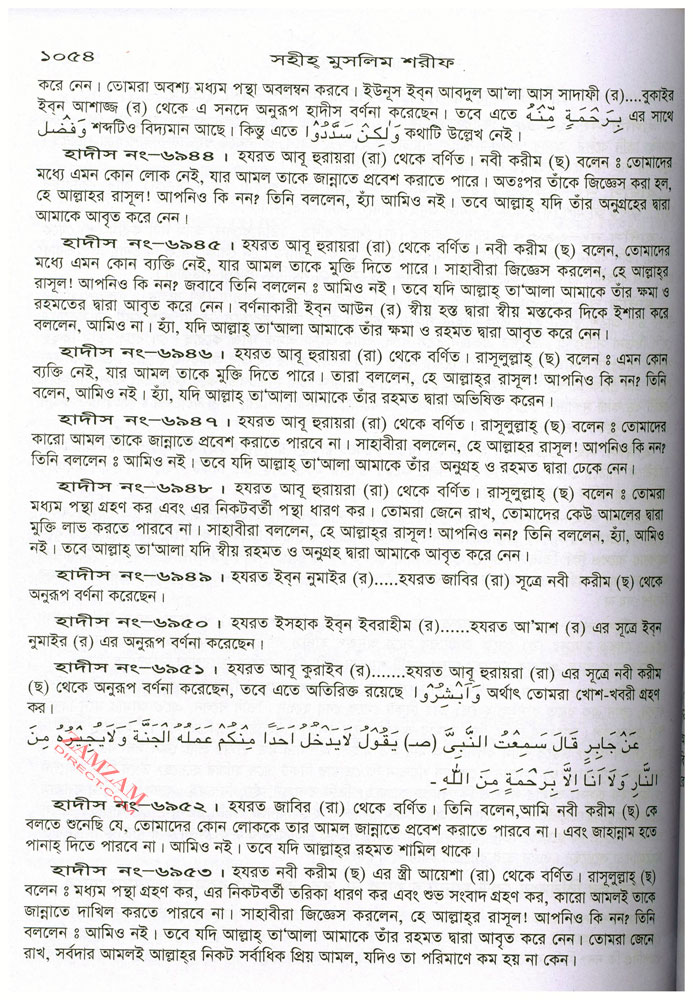 ১০৫৪ সহীহ্ মুসলিম শরীফ
করে নেন। তোমরা অবশ্য মধ্যম পন্থা অবলম্বন করবে। ইউনূস ইব্‌ন আবদুল আ'লা আস সাদাফী (র)....বুকাইর
ইব্‌ন আশাজ্জ (র) থেকে এ সনদে অনুরূপ হাদীস বর্ণনা করেছেন। তবে এতে بِرَحْمَةٍ مِّنْهُ এর সাথে
وَفَضْل শব্দটিও বিদ্যমান আছে। কিন্তু এতে وَلٰكِنْ سَدِّدُوْا কথাটি উল্লেখ নেই।
হাদীস নং–৬৯৪৪। হযরত আবূ হুরায়রা (রা) থেকে বর্ণিত। নবী করীম (ছ) বলেন ঃ তোমাদের
মধ্যে এমন কোন লোক নেই, যার আমল তাকে জান্নাতে প্রবেশ করাতে পারে। অতঃপর তাঁকে জিজ্ঞেস করা হল,
হে আল্লাহর রাসূল! আপনিও কি নন? তিনি বললেন, হ্যাঁ আমিও নই। তবে আল্লাহ যদি তাঁর অনুগ্রহের দ্বারা
আমাকে আবৃত করে নেন।
হাদীস নং–৬৯৪৫। হযরত আবূ হুরায়রা (রা) থেকে বর্ণিত। নবী করীম (ছ) বলেন, তোমাদের
মধ্যে এমন কোন ব্যক্তি নেই, যার আমল তাকে মুক্তি দিতে পারে। সাহাবীরা জিজ্ঞেস করলেন, হে আল্লাহ্‌র
রাসূল! আপনিও কি নন? জবাবে তিনি বললেন ঃ আমিও নই। তবে যদি আল্লাহ্ তা'আলা আমাকে তাঁর ক্ষমা ও
রহমতের দ্বারা আবৃত করে নেন। বর্ণনাকারী ইব্‌ন আউন (র) স্বীয় হস্ত দ্বারা স্বীয় মস্তকের দিকে ইশারা করে
বললেন, আমিও না। হ্যাঁ, যদি আল্লাহ্ তা'আলা আমাকে তাঁর ক্ষমা ও রহমত দ্বারা আবৃত করে নেন।
হাদীস নং–৬৯৪৬। হযরত আবূ হুরায়রা (রা) থেকে বর্ণিত। রাসূলুল্লাহ্ (ছ) বলেন ঃ এমন কোন
ব্যক্তি নেই, যার আমল তাকে মুক্তি দিতে পারে। তারা বললেন, হে আল্লাহর রাসূল! আপনিও কি নন? তিনি
বলেন, আমিও নই। হ্যাঁ, যদি আল্লাহ্ তা'আলা আমাকে তাঁর রহমত দ্বারা অভিষিক্ত করেন।
হাদীস নং–৬৯৪৭। হযরত আবূ হুরায়রা (রা) থেকে বর্ণিত। রাসূলুল্লাহ্ (ছ) বলেন ঃ তোমাদের
কারো আমল তাকে জান্নাতে প্রবেশ করাতে পারবে না। সাহাবীরা বললেন, হে আল্লাহর রাসূল! আপনিও কি নন?
তিনি বললেন ঃ আমিও নই। তবে যদি আল্লাহ্ তা'আলা আমাকে তাঁর অনুগ্রহ ও রহমত দ্বারা ঢেকে নেন।
হাদীস নং–৬৯৪৮। হযরত আবূ হুরায়রা (রা) থেকে বর্ণিত। রাসূলুল্লাহ্ (ছ) বলেন ঃ তোমরা
মধ্যম পন্থা গ্রহণ কর এবং এর নিকটবর্তী পন্থা ধারণ কর। তোমরা জেনে রাখ, তোমাদের কেউ আমলের দ্বারা
মুক্তি লাভ করতে পারবে না। সাহাবীরা বললেন, হে আল্লাহর রাসূল! আপনিও নন? তিনি বললেন, হ্যাঁ, আমিও
নই। তবে আল্লাহ্ তা'আলা যদি স্বীয় রহমত ও অনুগ্রহ দ্বারা আমাকে আবৃত করে নেন।
হাদীস নং–৬৯৪৯। হযরত ইব্‌ন নুমাইর (র).....হযরত জাবির (রা) সূত্রে নবী করীম (ছ) থেকে
অনুরূপ বর্ণনা করেছেন।
হাদীস নং–৬৯৫০। হযরত ইসহাক ইব্‌ন ইবরাহীম (র)......হযরত আ'মাশ (র) এর সূত্রে ইব্‌ন
নুমাইর (র) এর অনুরূপ বর্ণনা করেছেন।
হাদীস নং–৬৯৫১। হযরত আবূ কুরাইব (র).......হযরত আবূ হুরায়রা (রা) এর সূত্রে নবী করীম
(ছ) থেকে অনুরূপ বর্ণনা করেছেন, তবে এতে অতিরিক্ত রয়েছে وَاَبْشِرُوْا। অর্থাৎ তোমরা খোশ-খবরী গ্রহণ
কর।
عَنْ جَابِرٍ قَالَ سَمِعْتُ النَّبِىَّ (صـ) يَقُوْلُ لَايَدْخُلُ اَحَدًا مِنْكُمْ عَمَلُهُ الْجَنَّةَ وَلَايُجِيْرُهُ مِنَ
النَّارِ وَلَا اَنَا اِلَّا بِرَحْمَةٍ مِنَ اللّٰهِ -
ZAMZAM
DIRECT.COM
হাদীস নং–৬৯৫২। হযরত জাবির (রা) থেকে বর্ণিত। তিনি বলেন,আমি নবী করীম (ছ) কে
বলতে শুনেছি যে, তোমাদের কোন লোককে তার আমল জান্নাতে প্রবেশ করাতে পারবে না। এবং জাহান্নাম হতে
পানাহ্ দিতে পারবে না। আমিও নই। তবে যদি আল্লাহ্‌র রহমত শামিল থাকে।
হাদীস নং–৬৯৫৩। হযরত নবী করীম (ছ) এর স্ত্রী আয়েশা (রা) থেকে বর্ণিত। রাসূলুল্লাহ্ (ছ)
বলেন ঃ মধ্যম পন্থা গ্রহণ কর, এর নিকটবর্তী তরিকা ধারণ কর এবং শুভ সংবাদ গ্রহণ কর, কারো আমলই তাকে
জান্নাতে দাখিল করতে পারবে না। সাহাবীরা জিজ্ঞেস করলেন, হে আল্লাহ্‌র রাসূল! আপনিও কি নন? তিনি
বললেন ঃ আমিও নই। তবে যদি আল্লাহ্ তা'আলা আমাকে তাঁর রহমত দ্বারা আবৃত করে নেন। তোমরা জেনে
রাখ, সর্বদার আমলই আল্লাহ্‌র নিকট সর্বাধিক প্রিয় আমল, যদিও তা পরিমাণে কম হয় না কেন।